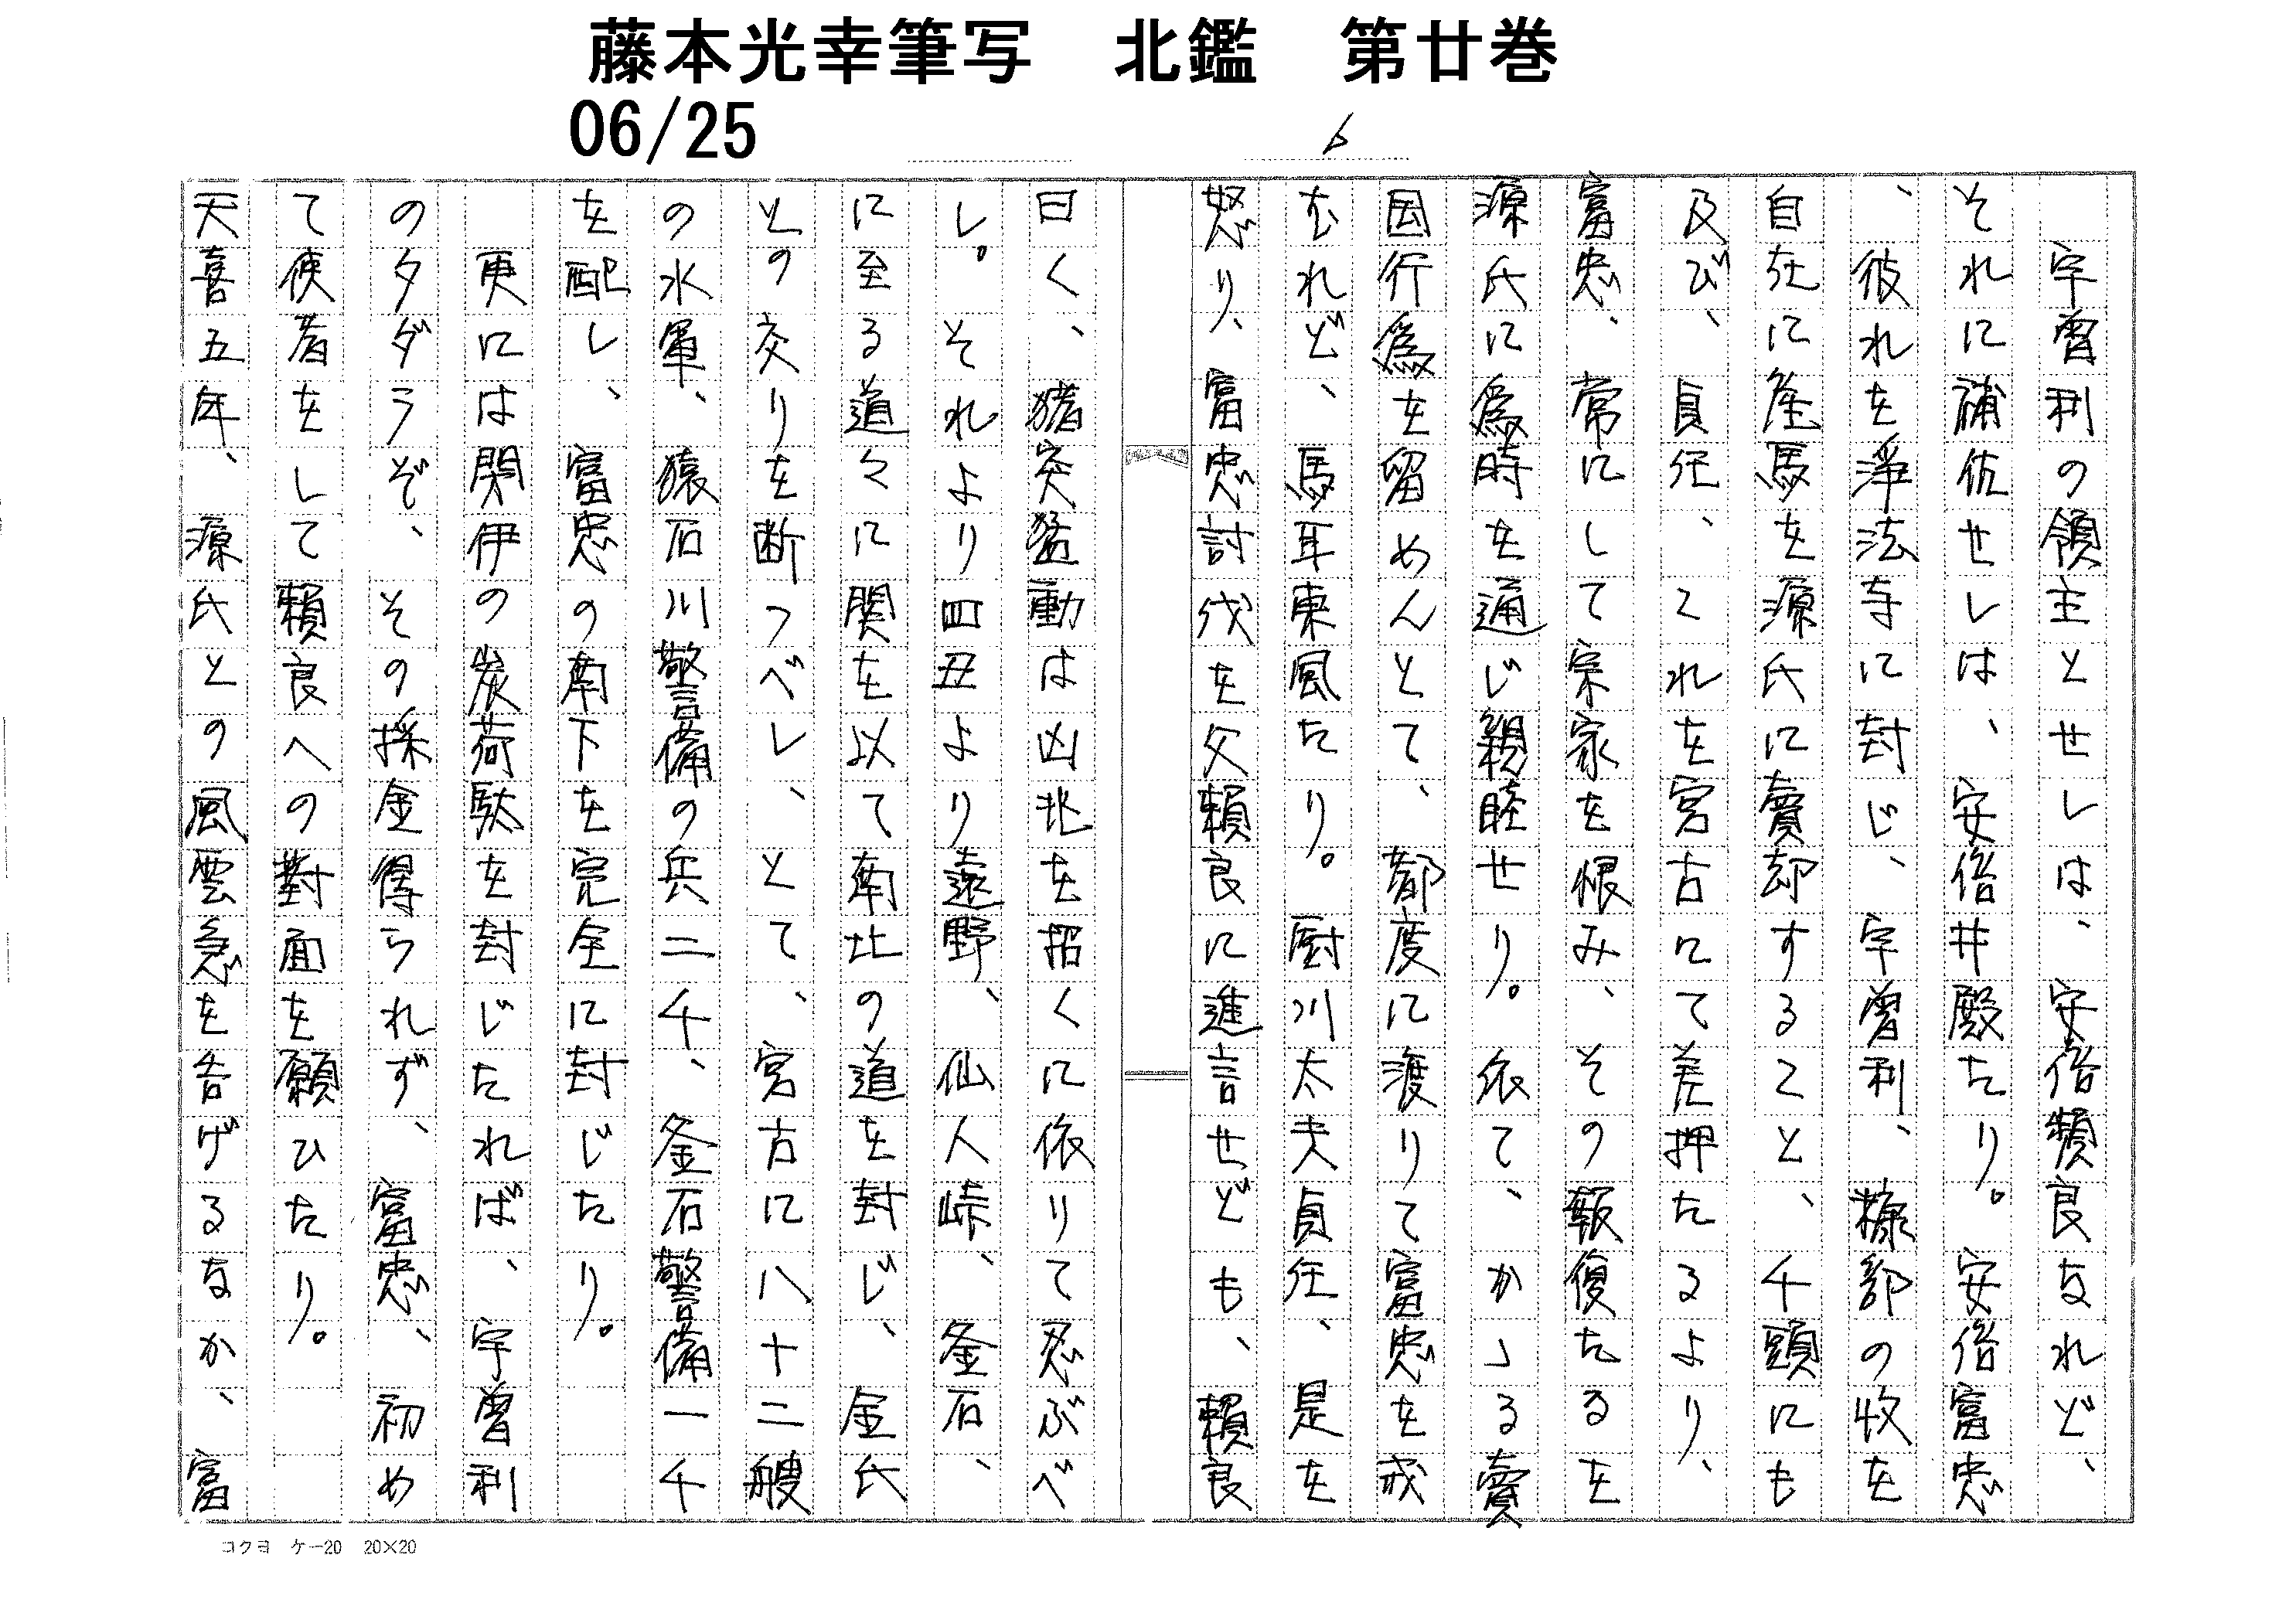 藤本光幸筆写　北鑑　第廿巻
06/25
6
宇曽利の領主とせしは、安倍頼良なれど、
それに補佐せしは、安倍井殿たり。安倍富忠
、彼れを浄法寺に封じ、宇曽利、糠部の牧を
自在に産馬を源氏に賣却すること、千頭にも
及び、貞任、これを宮古にて差押たるより、
富忠、常にして宗家を恨み、その報復たるを
源氏に為時を通じ親睦せり。依て、かゝる賣
国行為を留めんとて、都度に渡りて富忠を戒
むれど、馬耳東風たり。厨川太夫貞任、是を
怒り、富忠討伐を父頼良に進言せども、頼良
曰く、猪突猛動は凶兆を招くに依りて忍ぶべ
し。それより四丑より遠野、仙人峠、釜石、
に至る道々に関を以て南北の道を封じ、金氏
との交りを断つべし、とて、宮古に八十二艘
の水軍、猿石川警備の兵二千、釜石警備一千
を配し、富忠の南下を完全に封じたり。
更には閉伊の炭荷駄を封じたれば、宇曽利
のタダラぞ、その採金得られず、富忠、初め
て使者をして頼良への對面を願ひたり。
天喜五年、源氏との風雲急を告げるなか、富
コクヨ　ケー20　20×20